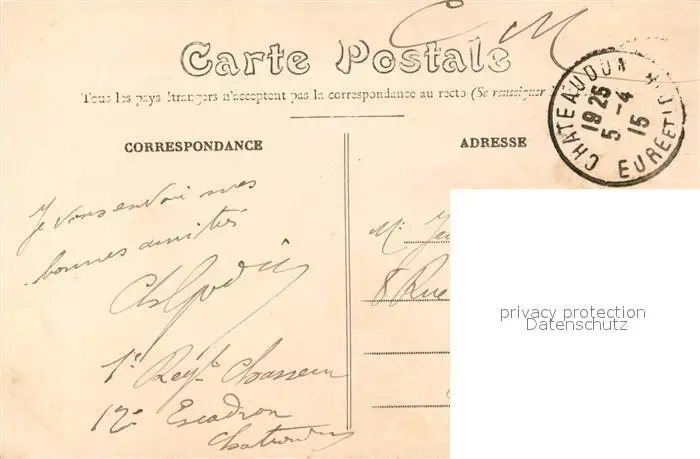 C M
Carte Postale
Tous les pays étrangers n'acceptent pas la correspondance au recto (Se renseigner
CHATEAUDUN
EURE ET
19 25
5 - 4
15
CORRESPONDANCE
ADRESSE
Je vous envoi mes
bonnes amitiés
1er Regt Chasseur
12e Escadron
Chateaudun
Mr
8 Rue
privacy protection
Datenschutz